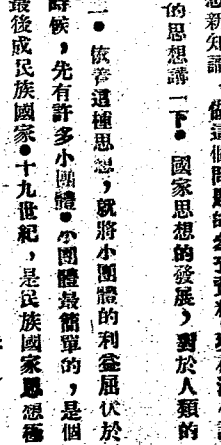 新知識
的思想講一下。國家思想的發展，對於人類的
一。依着這種思想，就將小團體的利益屈伏於
時候，先有許多小團體。小團體最簡單的，是個
最後成民族國家。十九世紀，是民族國家思想極